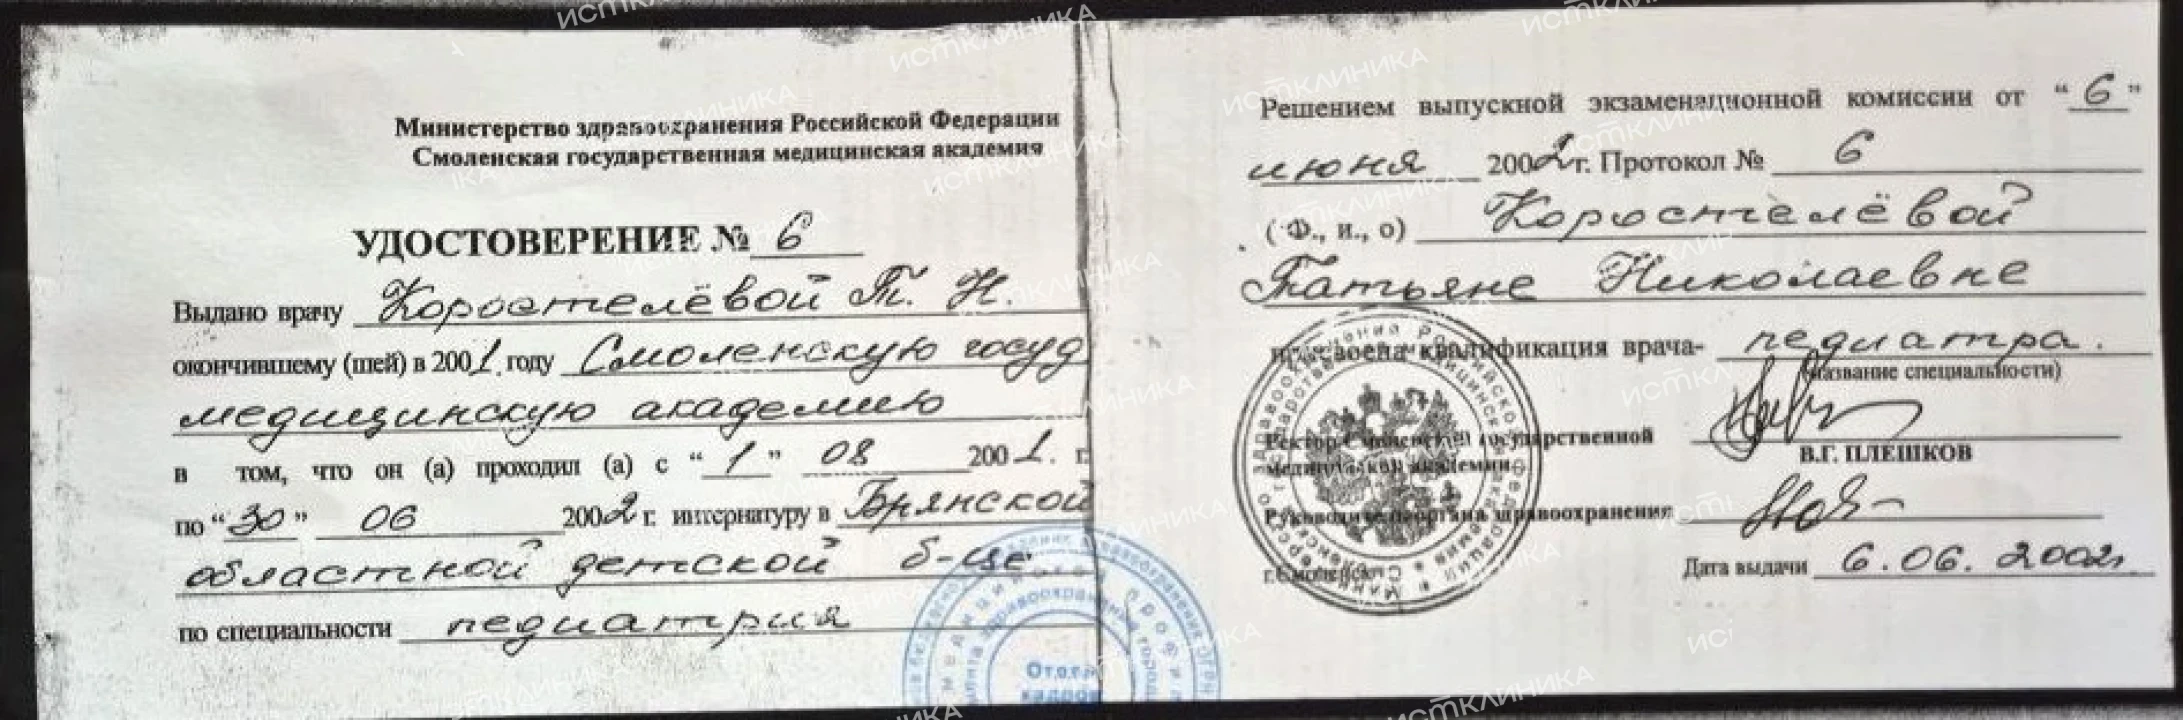 Министерство здравоохранения Российской Федерации
Смоленская государственная медицинская академия
УДОСТОВЕРЕНИЕ № 6
Выдано врачу Коростелёвой Т. Н.
окончившему (шей) в 2001 году Смоленскую госуд
медицинскую академию
в том, что он (а) проходил (а) с “ 1 ” 08 2001. г.
по “ 30 ” 06 2002 г. интернатуру в Брянской
областной детской б-це
по специальности педиатрия
Отдел
кадров
Решением выпускной экзаменационной комиссии от “ 6 ”
июня 2002 г. Протокол № 6
( Ф., и., о) Коростелёвой
Татьяне Николаевне
присвоена квалификация врача- педиатра.
(название специальности)
Ректор Смоленской государственной
медицинской академии
В.Г. ПЛЕШКОВ
Руководитель органа здравоохранения
Дата выдачи 6.06. 2002г
г.Смоленск
ИСТКЛИНИКА